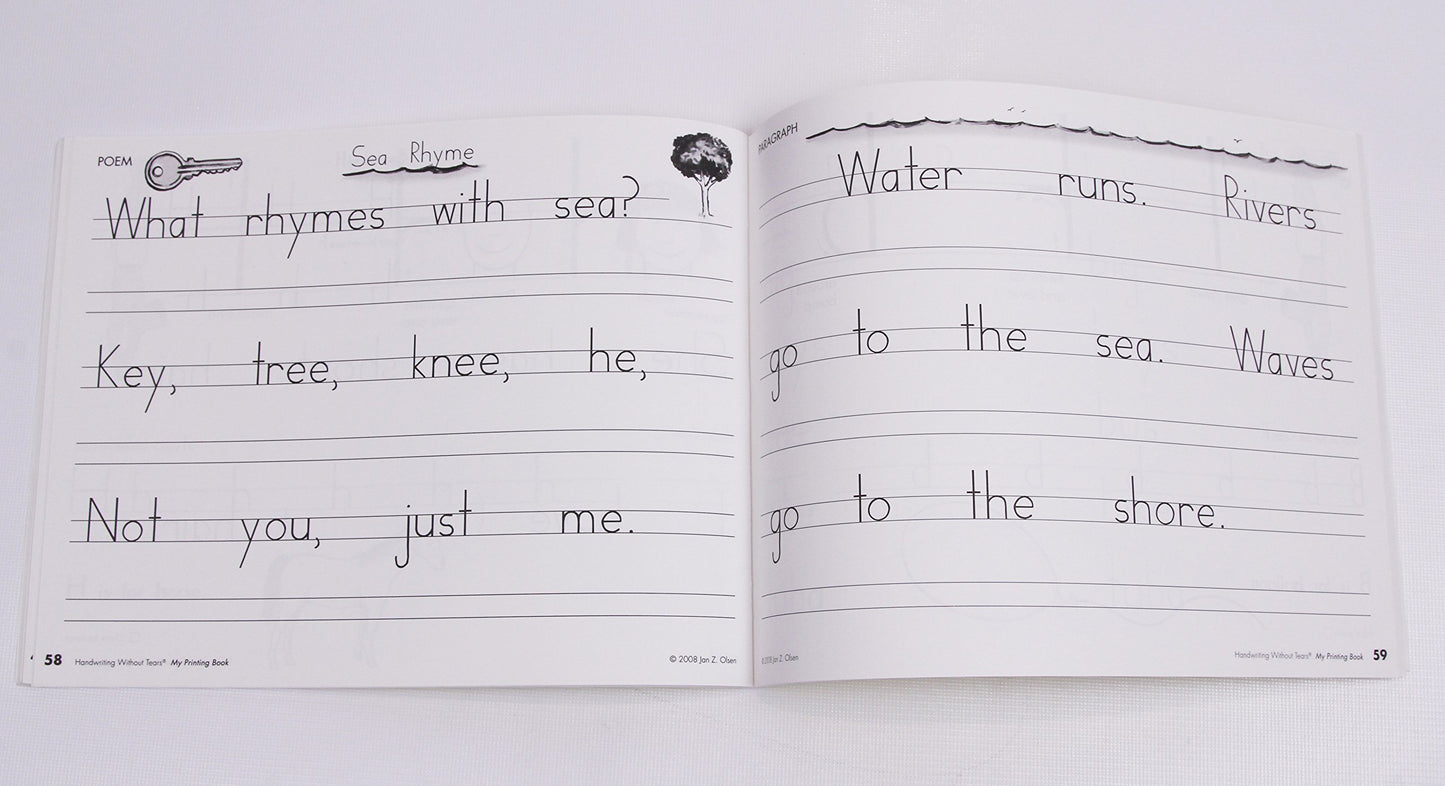 POEM
Sea Rhyme
What rhymes with sea?
Key, tree, knee, he,
Not you, just me.
58 Handwriting Without Tears® My Printing Book
© 2008 Jan Z. Olsen
PARAGRAPH
Water runs. Rivers
go to the sea. Waves
go to the shore.
© 2008 Jan Z. Olsen
Handwriting Without Tears® My Printing Book 59